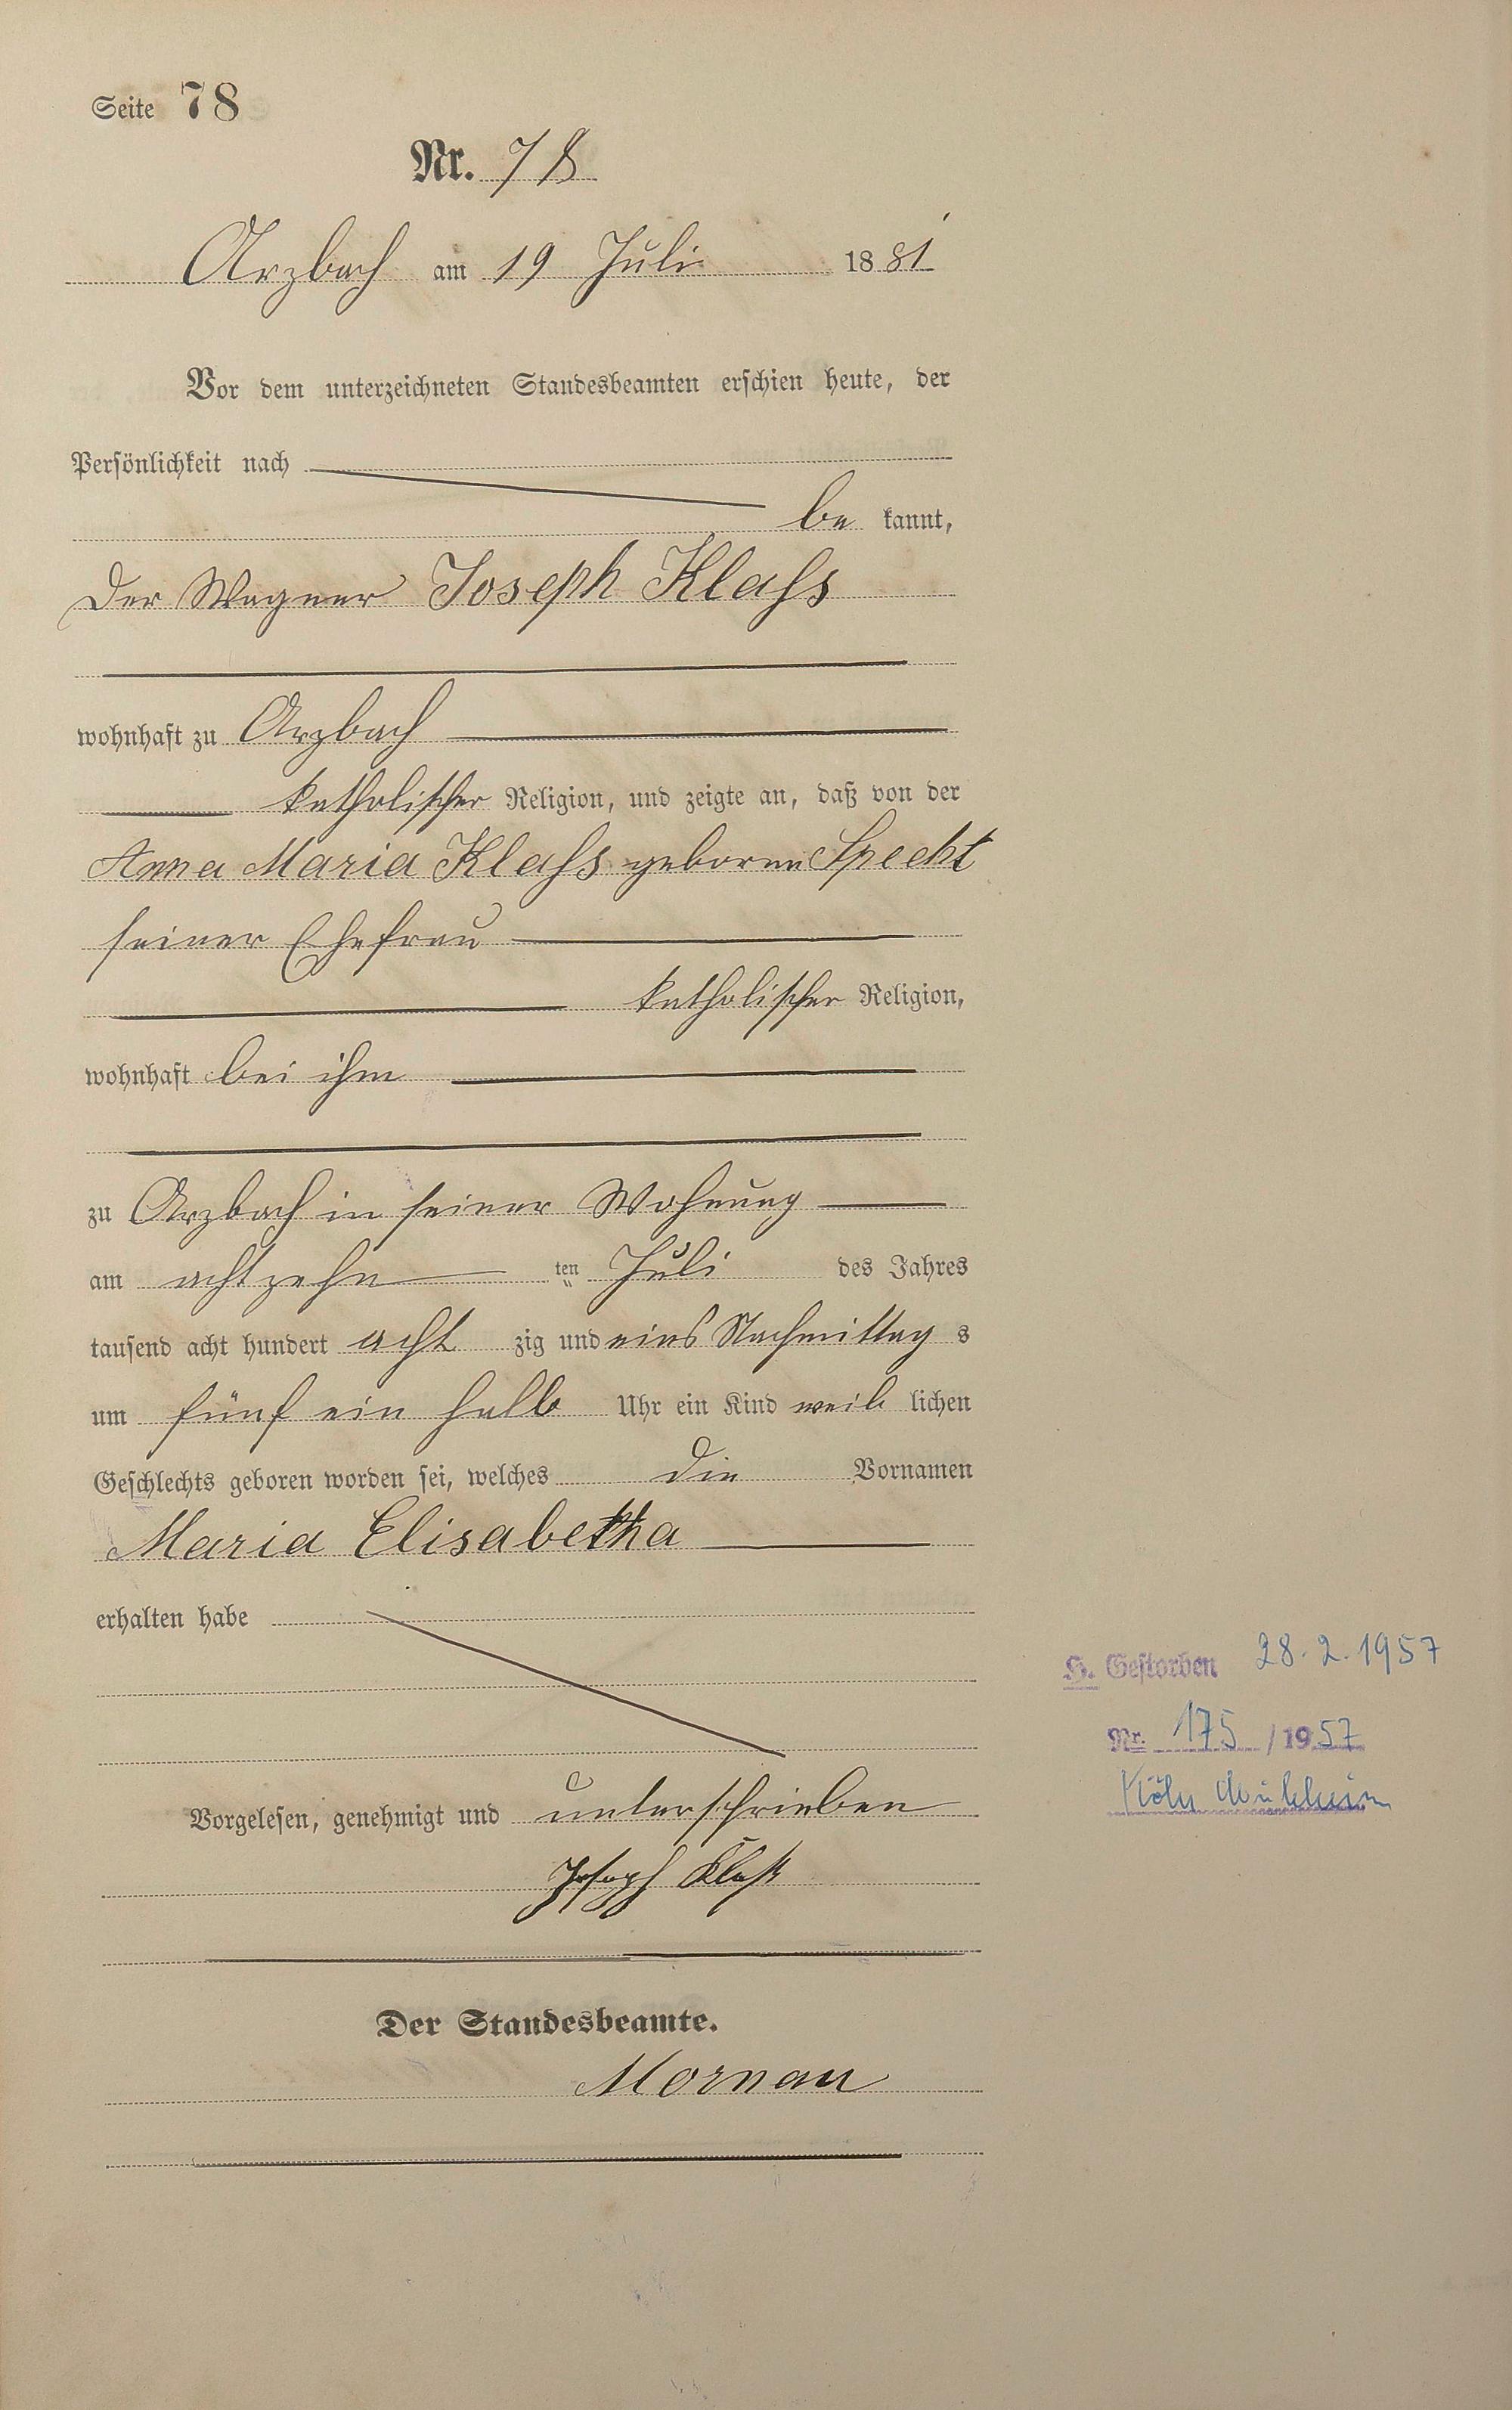 Seite 78
Nr. 78
Arzbach am 19 Juli 1881
Vor dem unterzeichneten Standesbeamten erschien heute, der
Persönlichkeit nach
be kannt,
Der Wagner Joseph Klaß
wohnhaft zu Arzbach
katholischer Religion, und zeigte an, daß von der
Anna Maria Klaß geborne Specht
seiner Ehefrau
katholischer Religion,
wohnhaft bei ihm
zu Arzbach in seiner Wohnung
am achtzehn ten Juli des Jahres
tausend acht hundert acht zig und eins Nachmittag s
um fünf ein halb Uhr ein Kind weib lichen
Geschlechts geboren worden sei, welches die Vornamen
Maria Elisabetha
erhalten habe
H. Gestorben 28.2.1957
Nr. 175 / 1957
Köln Mülheim
Vorgelesen, genehmigt und unterschrieben
Joseph Klaß
Der Standesbeamte.
Mornau